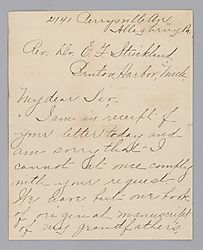 2141 Perrysville Av.
Allegheny Pa.
Rev. Dr. E. F. Strickland,
Benton Harbor, Mich.
My dear Sir.
I am in receipt of
your letter today and
am sorry that I
cannot at once comply
with your request.
We have but one book
of original manuscript
of my grandfather's